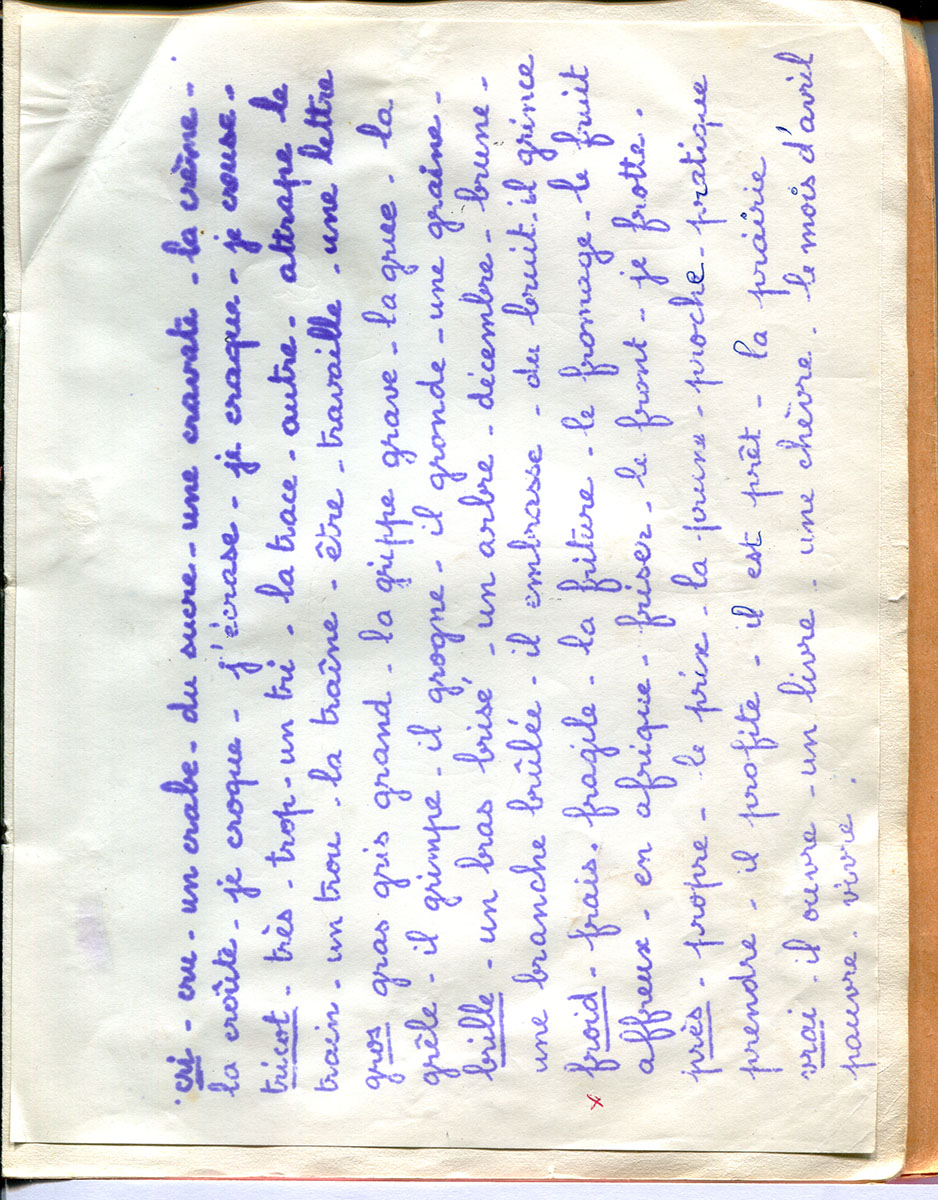 cri - cru - un crabe - du sucre - une cravate - la crème -
la croûte - je croque - j'écrase - je craque - je creuse.
tricot - très - trop - un tri - la trace - autre - attrape le
train - un trou - la traîne - être - travaille - une lettre
gros gras gris grand - la grippe grave - la grue - la
grêle - il grimpe - il grogne - il gronde - une graine -
brille - un bras brisé, - un arbre - décembre - brune -
une branche brûlée - il embrasse - du bruit - il grince
x froid - frais, fragile - la friture - le fromage - le fruit
affreux - en afrique - friser - le front - je frotte.
près - propre - le prix - la prune - proche - pratique
prendre - il profite - il est prêt - la prairie
vrai - il ouvre - un livre - une chèvre - le mois d'avril
pauvre - vivre.